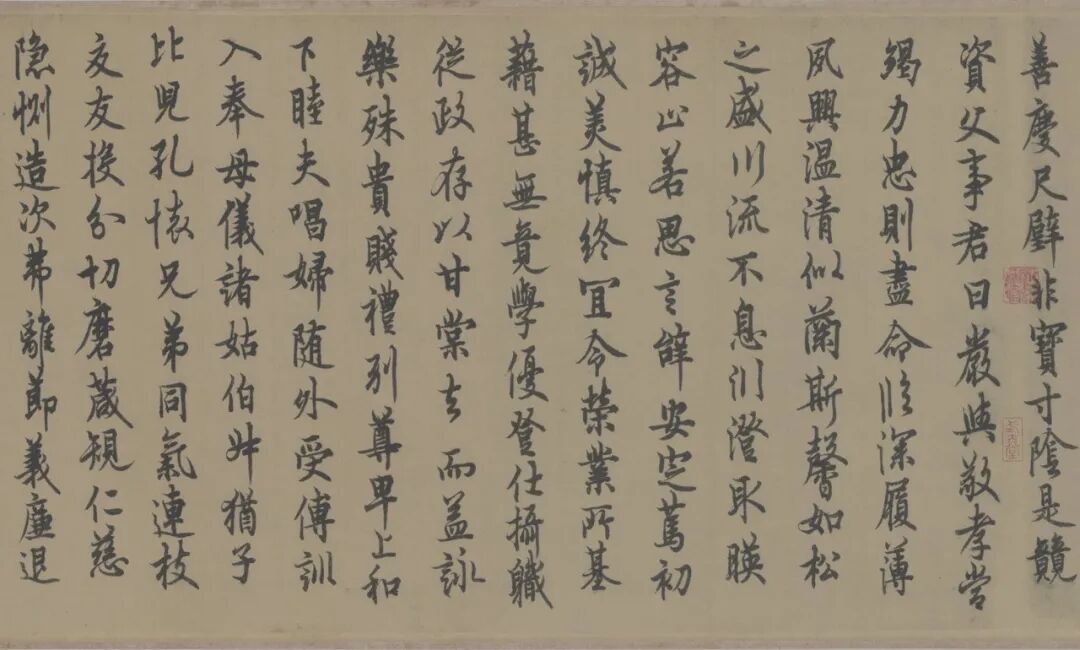 善慶尺璧非寶寸陰是競
資父事君曰嚴與敬孝當
竭力忠則盡命臨深履薄
夙興温凊似蘭斯馨如松
之盛川流不息淵澄取暎
容止若思言辭安定篤初
誠美慎終宜令榮業所基
藉甚無竟學優登仕攝職
從政存以甘棠去而益詠
樂殊貴賤禮別尊卑上和
下睦夫唱婦随外受傅訓
入奉母儀諸姑伯叔猶子
比兒孔懷兄弟同氣連枝
交友投分切磨箴規仁慈
隐惻造次弗離節義廉退